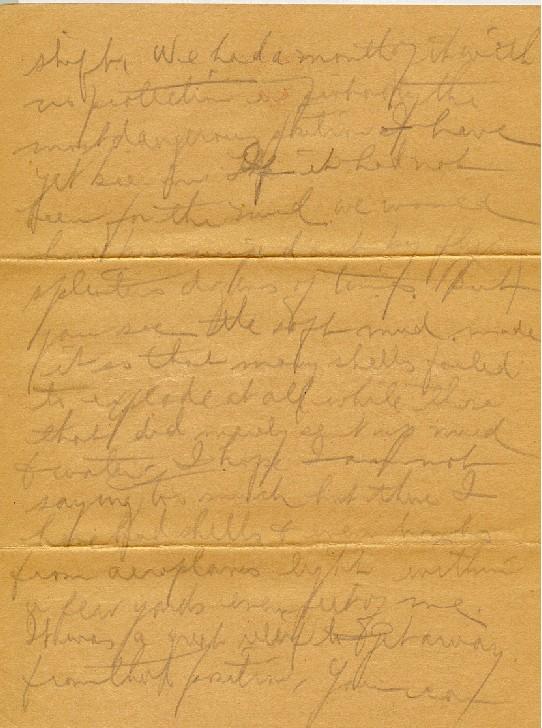 shift. We had a month of it with
no protection in probably the
most dangerous position I have
yet seen. If it had not
been for the mud we would
have been by
splinters dozens of times. But
you see the soft mud made
it so that many shells failed
to explode at all while those
that did merely spurt up mud
& water. I hope I am not
saying too much but there I
have had shells & even bombs
from aeroplanes light within
a few yards even feet of me.
It was a great relief to get away
from that position. You can